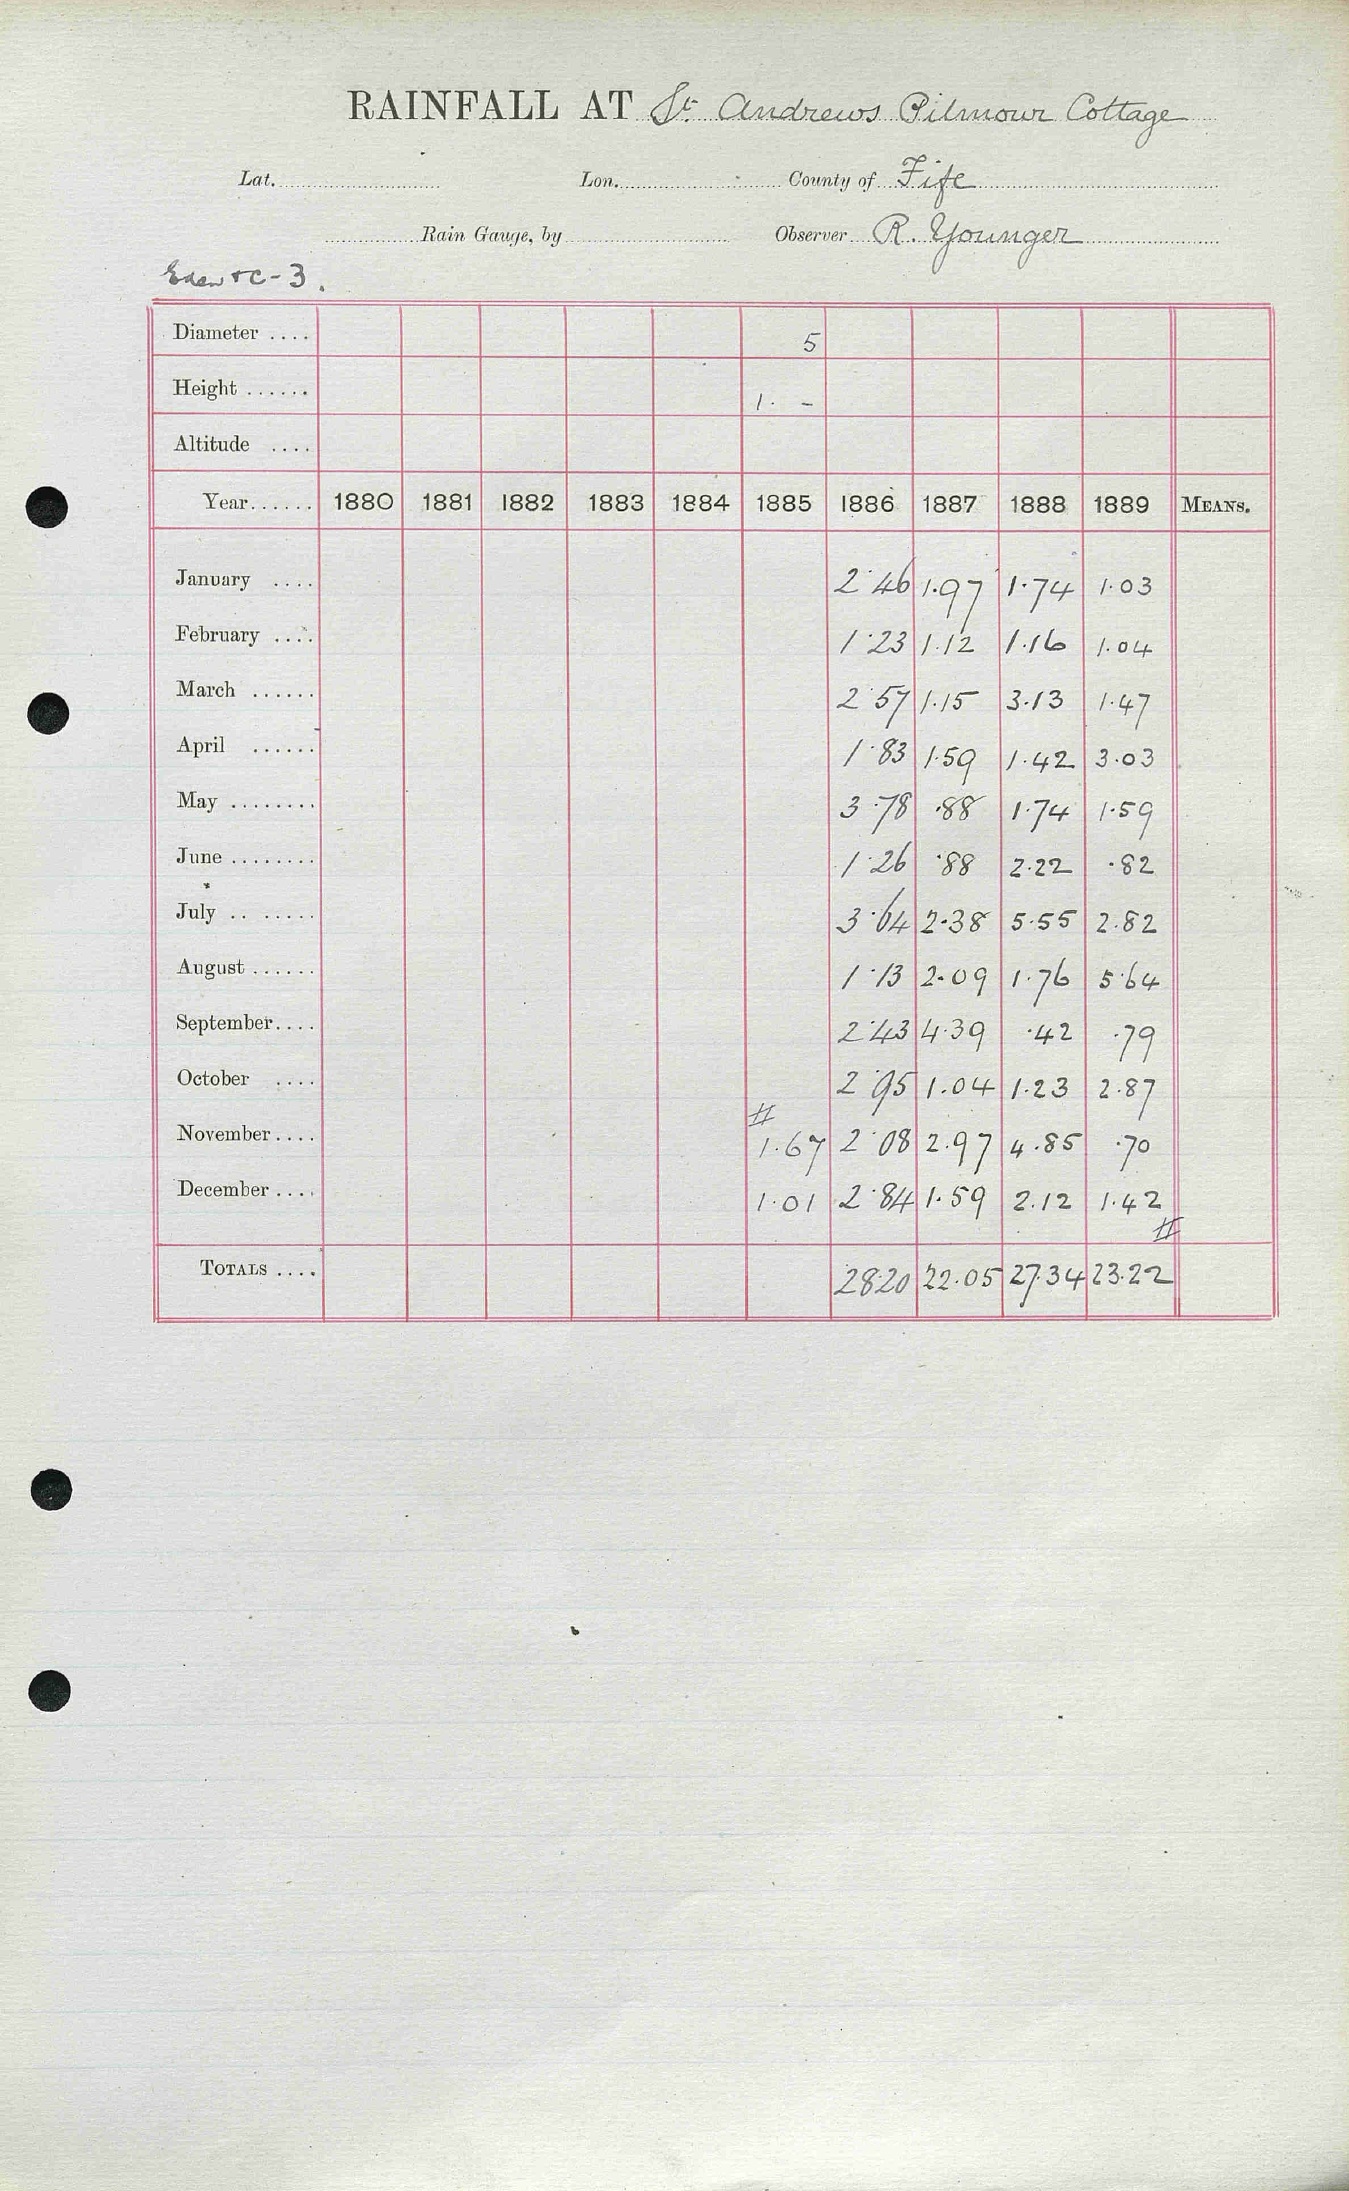 RAINFALL AT St. Andrews Pilmour Cottage
Lat. Lon. County of Fife
Rain Gauge, by Observer R. Younger
Diameter .... 5
Height ...... 1. -
Altitude ....
Year...... 1880 1881 1882 1883 1884 1885 1886 1887 1888 1889 MEANS.
January .... 2.46 1.97 1.74 1.03
February .... 1.23 1.12 1.16 1.04
March ...... 2.57 1.15 3.13 1.47
April ...... 1.83 1.59 1.42 3.03
May ........ 3.78 .88 1.74 1.59
June ........ 1.26 .88 2.22 .82
July .. ..... 3.64 2.38 5.55 2.82
August ...... 1.13 2.09 1.76 5.64
September.... 2.43 4.39 .42 .79
October .... 2.95 1.04 1.23 2.87
November.... 1.67 2.08 2.97 4.85 .70
December .... 1.01 2.84 1.59 2.12 1.42
TOTALS .... 28.20 22.05 27.34 23.22